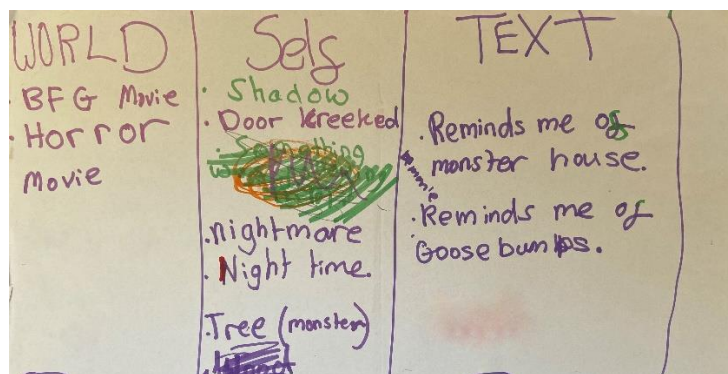 WORLD
· BFG Movie
· Horror
Movie
Self
· Shadow
· Door kreeked
· Something
· nightmare
· Night time.
· Tree (monster)
TEXT
· Reminds me of
monster house.
· Reminds me of
Goosebumps.